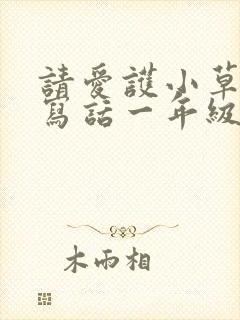 請愛護小草
寫話一年級
木雨相